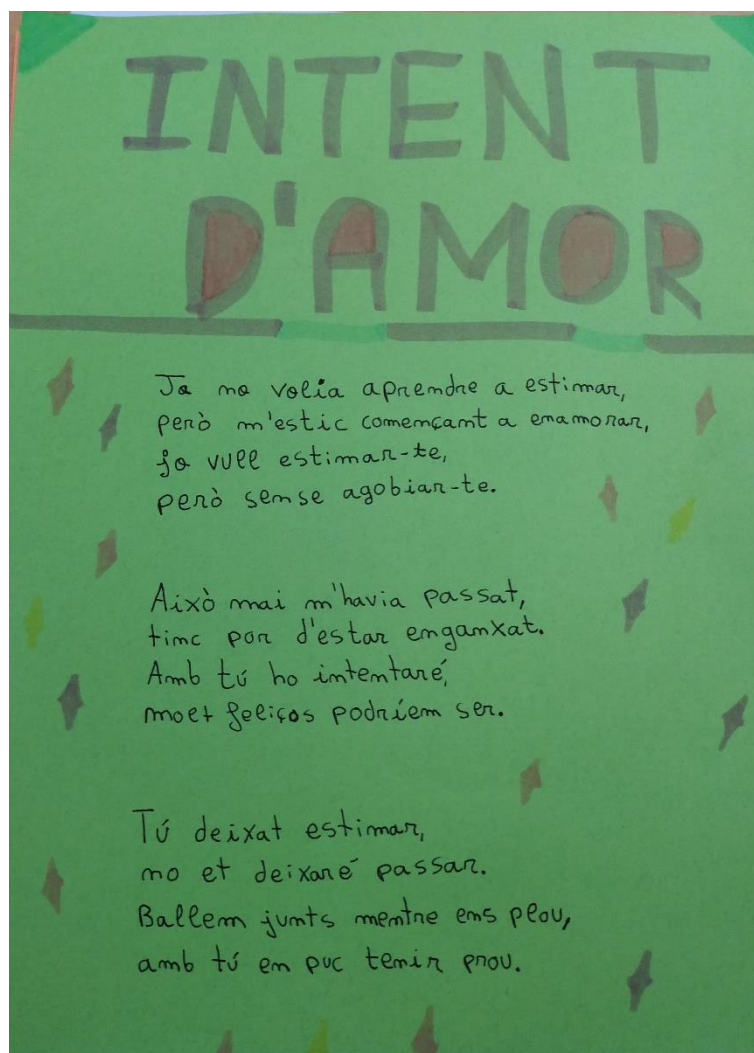 INTENT
D'AMOR
Jo no volia aprendre a estimar,
però m'estic començant a enamorar,
jo vull estimar-te,
però sense agobiar-te.
Això mai m'havia passat,
tinc por d'estar enganxat.
Amb tú ho intentaré,
molt feliços podríem ser.
Tú deixat estimar,
no et deixaré passar.
Ballem junts mentre ens plou,
amb tú en puc tenir prou.